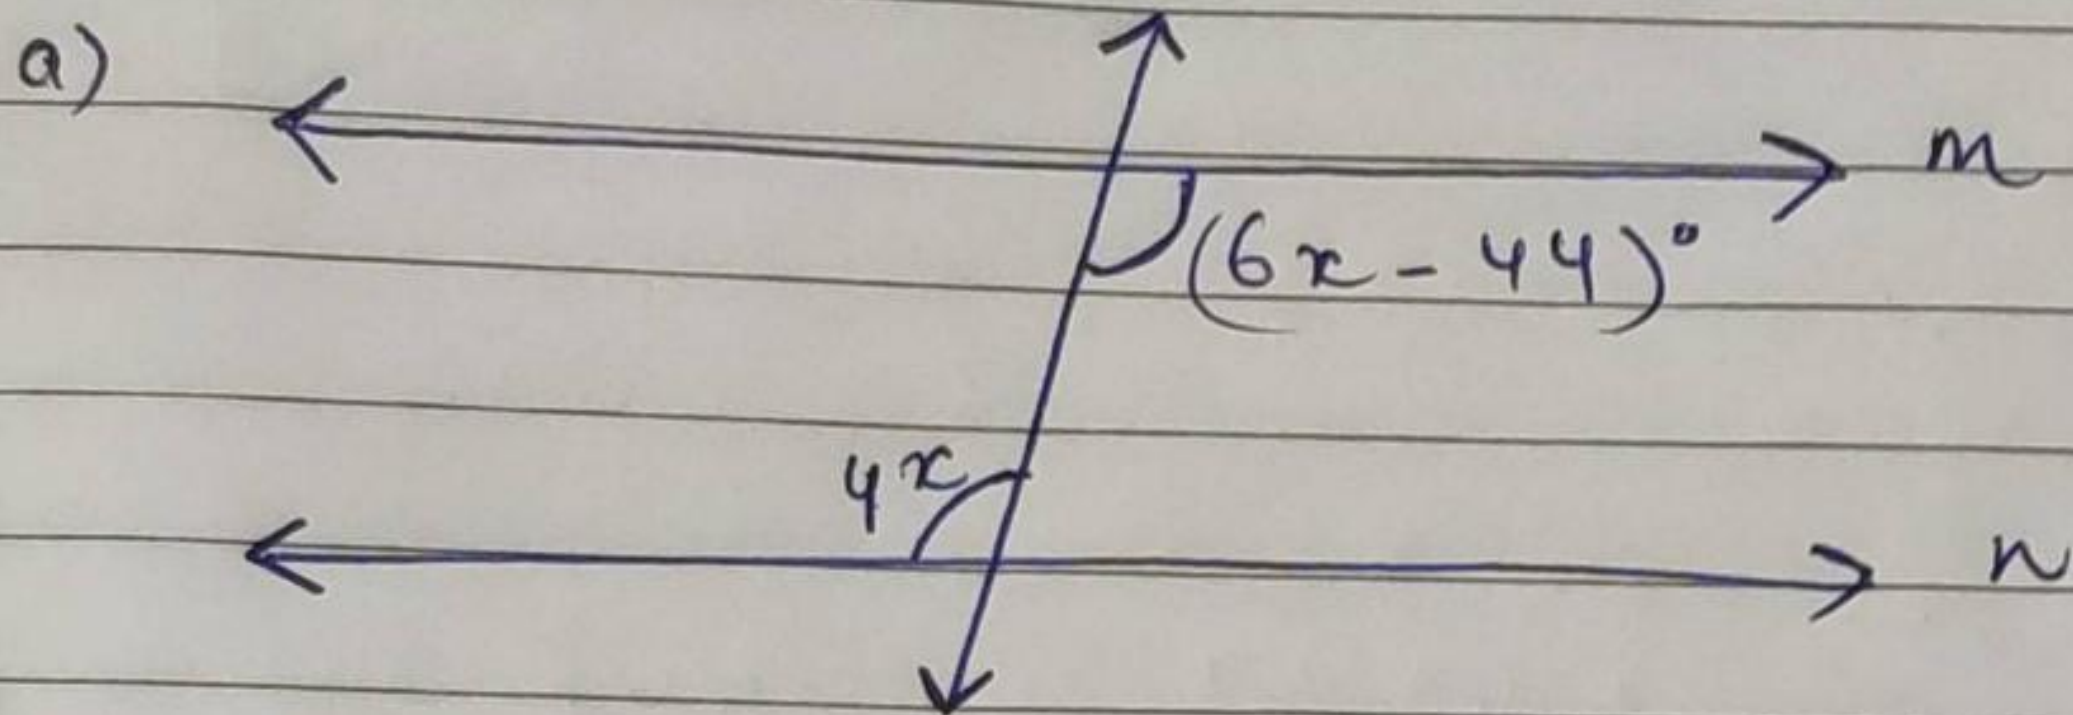 a)
m
(6x - 44)°
4x
n